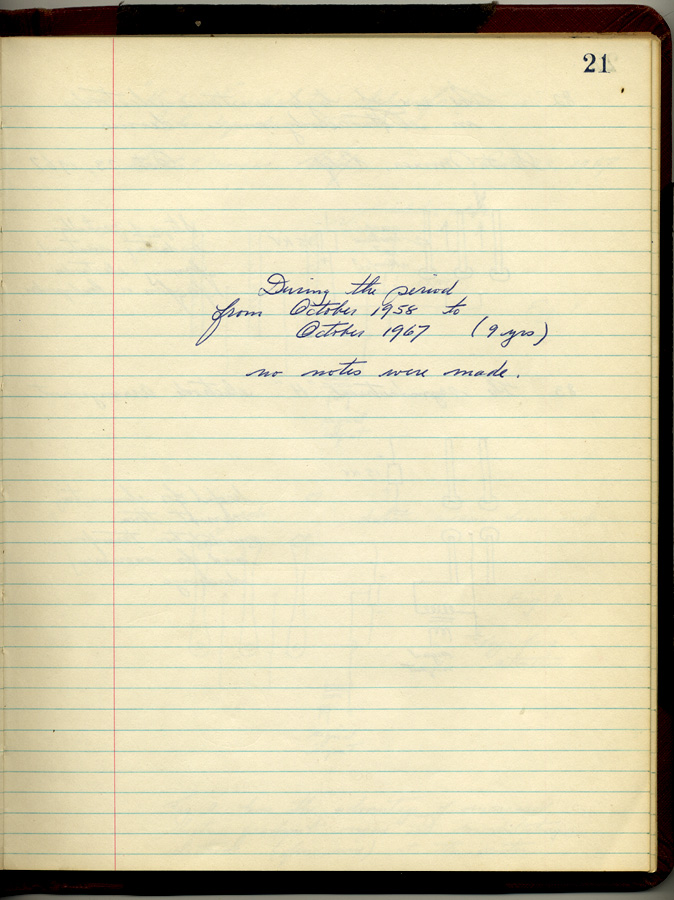 21
During the period
from October 1958 to
October 1967 (9 yrs)
no notes were made.